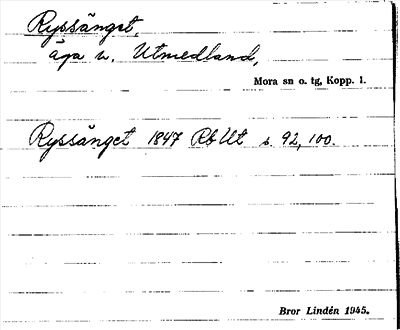 Ryssänget,
äga u. Utmedland,
Mora sn o. tg, Kopp. l.
Ryssänget 1847 Rb Ut s. 92, 100.
Bror Lindén 1945.